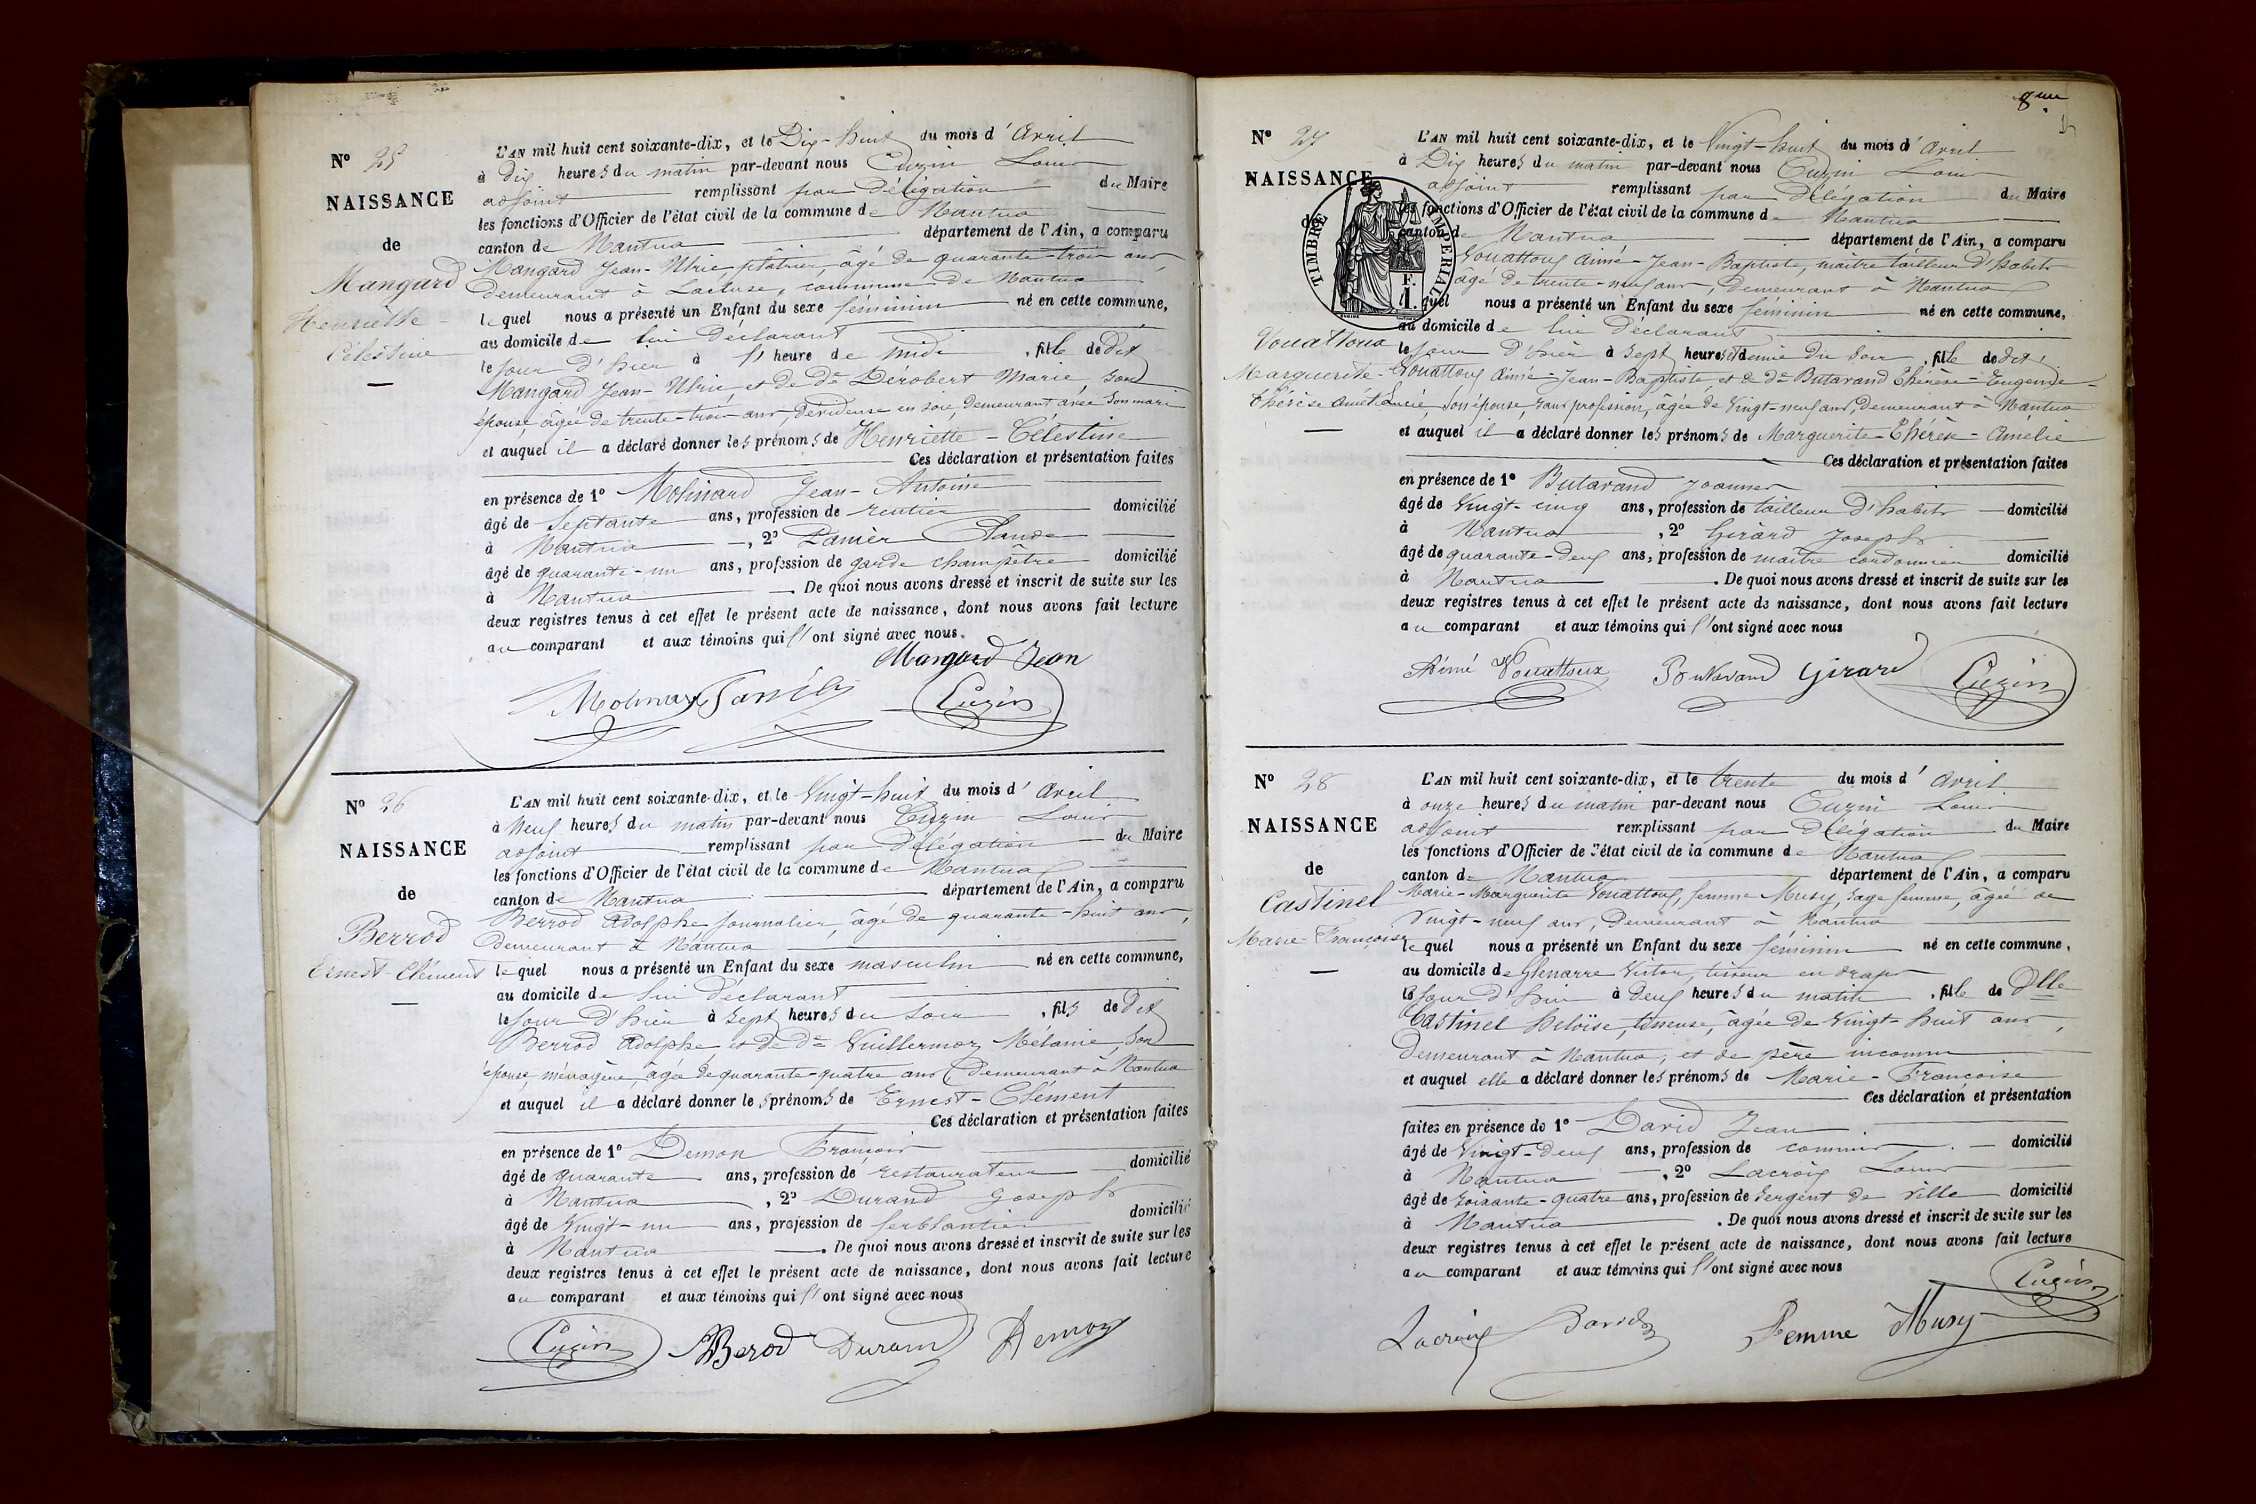 N° 25
NAISSANCE
de
Mangard
Henriette
Célestine
L'AN mil huit cent soixante-dix, et le Dix-huit du mois d'Avril
à Dix heures du matin par-devant nous Cuzin Louis
adjoint remplissant par Délégation du Maire
les fonctions d'Officier de l'état civil de la commune de Nantua
canton de Nantua département de l'Ain, a comparu
Mangard Jean-Ulric plâtrier, âgé de quarante-trois ans,
demeurant à Lacluse, commune de Nantua
lequel nous a présenté un Enfant du sexe féminin né en cette commune,
au domicile de lui Déclarant
le jour d'hier à l'heure de midi, fille de Dit
Mangard Jean-Ulric, et de De Dérobert Marie, son
épouse âgée de trente-trois ans, Dévideuse en soie, demeurant avec son mari
et auquel il a déclaré donner les prénoms de Henriette-Célestine
Ces déclaration et présentation faites
en présence de 1° Molinard Jean-Antoine
âgé de Septante ans, profession de rentier domicilié
à Nantua, 2° Claude
âgé de quarante-un ans, profession de garde champêtre domicilié
à Nantua. De quoi nous avons dressé et inscrit de suite sur les
deux registres tenus à cet effet le présent acte de naissance, dont nous avons fait lecture
au comparant et aux témoins qui l'ont signé avec nous.
Mangard Jean
Molinard Cuzin
N° 26
NAISSANCE
de
Berrod
Ernest-Clément
L'AN mil huit cent soixante-dix, et le Vingt-huit du mois d'Avril
à Neuf heures du matin par-devant nous Cuzin Louis
adjoint remplissant par Délégation du Maire
les fonctions d'Officier de l'état civil de la commune de Nantua
canton de Nantua département de l'Ain, a comparu
Berrod Adolphe journalier, âgé de quarante-huit ans,
demeurant à Nantua
lequel nous a présenté un Enfant du sexe masculin né en cette commune,
au domicile de lui Déclarant
le jour d'hier à Sept heures du soir, fils de Dit
Berrod Adolphe et de De Vuillermoz Mélanie, son
épouse, ménagère, âgée de quarante-quatre ans demeurant à Nantua
et auquel il a déclaré donner les prénoms de Ernest-Clément
Ces déclaration et présentation faites
en présence de 1° François
âgé de quarante ans, profession de restaurateur domicilié
à Nantua, 2° Durand Joseph
âgé de Vingt-un ans, profession de ferblantier domicilié
à Nantua. De quoi nous avons dressé et inscrit de suite sur les
deux registres tenus à cet effet le présent acte de naissance, dont nous avons fait lecture
au comparant et aux témoins qui l'ont signé avec nous
Cuzin Berod Durand
8me
N° 27
NAISSANCE
de
TIMBRE IMPERIAL
1 F.
Vouattoux
Marguerite-
Thérèse Amélie
L'AN mil huit cent soixante-dix, et le Vingt-huit du mois d'Avril
à Dix heures du matin par-devant nous Cuzin Louis
adjoint remplissant par Délégation du Maire
les fonctions d'Officier de l'état civil de la commune de Nantua
canton de Nantua département de l'Ain, a comparu
Vouattoux Aimé-Jean-Baptiste, maître tailleur d'habits
âgé de trente-neuf ans demeurant à Nantua
lequel nous a présenté un Enfant du sexe féminin né en cette commune,
au domicile de lui Déclarant
le jour d'hier à Sept heures et demie du soir, fille de Dit
Vouattoux Aimé-Jean-Baptiste, et de De Butavand Thérèse-Eugénie-
son épouse, sans profession, âgée de Vingt-neuf ans, demeurant à Nantua
et auquel il a déclaré donner les prénoms de Marguerite-Thérèse-Amélie
Ces déclaration et présentation faites
en présence de 1° Butavand Joannes
âgé de Vingt-cinq ans, profession de tailleur d'habits domicilié
à Nantua, 2° Girard Joseph
âgé de quarante-deux ans, profession de maître cordonnier domicilié
à Nantua. De quoi nous avons dressé et inscrit de suite sur les
deux registres tenus à cet effet le présent acte de naissance, dont nous avons fait lecture
au comparant et aux témoins qui l'ont signé avec nous
Aimé Vouattoux Butavand Girard Cuzin
N° 28
NAISSANCE
de
Castinel
Marie-Françoise
L'AN mil huit cent soixante-dix, et le trente du mois d'Avril
à onze heures du matin par-devant nous Cuzin Louis
adjoint remplissant par Délégation du Maire
les fonctions d'Officier de l'état civil de la commune de Nantua
canton de Nantua département de l'Ain, a comparu
Marie-Marguerite Vouattoux, femme Musy, sage femme, âgée de
Vingt-neuf ans, demeurant à Nantua
lequel nous a présenté un Enfant du sexe féminin né en cette commune,
au domicile de Victor, tisseur en draps
le jour d'hier à Deux heures du matin, fille de Dlle
Castinel Héloïse, tisseuse, âgée de Vingt-huit ans,
demeurant à Nantua, et de père inconnu
et auquel elle a déclaré donner les prénoms de Marie-Françoise
Ces déclaration et présentation
faites en présence de 1° David Jean
âgé de Vingt-deux ans, profession de commis domicilié
à Nantua, 2° Lacroix Louis
âgé de soixante-quatre ans, profession de sergent de ville domicilié
à Nantua. De quoi nous avons dressé et inscrit de suite sur les
deux registres tenus à cet effet le présent acte de naissance, dont nous avons fait lecture
au comparant et aux témoins qui l'ont signé avec nous
Cuzin
Lacroix David Femme Musy